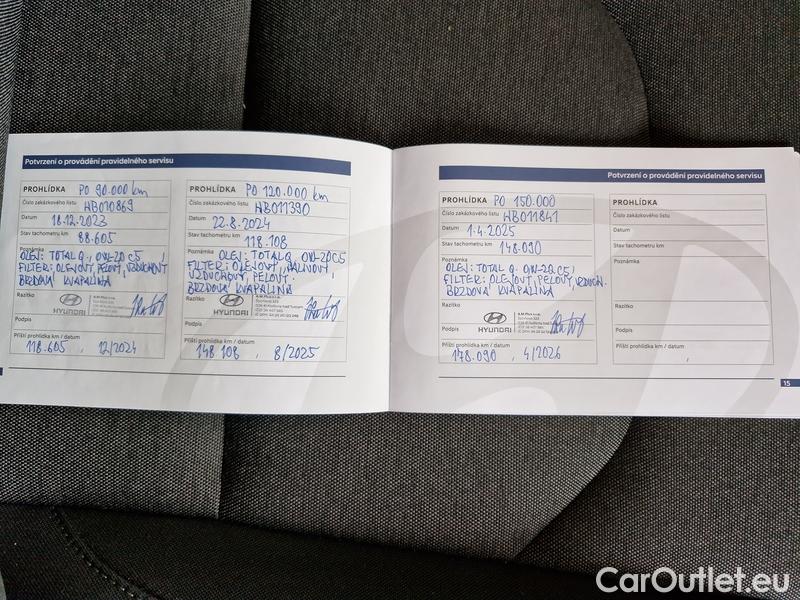 Potvrzení o provádění pravidelného servisu
PROHLÍDKA PO 90.000 km
Číslo zakázkového listu HB010869
Datum 18.12.2023
Stav tachometru km 88.605
Poznámka
OLEJ: TOTAL Q. 0W-20 C5,
FILTER: OLEJOVÝ, PEĽOVÝ, VZDUCHOVÝ
BRZDOVÁ KVAPALINA
Razítko
HYUNDAI
Podpis
Příští prohlídka km / datum
118.605, 12/2024
PROHLÍDKA PO 120.000 km
Číslo zakázkového listu HB011390
Datum 22.8.2024
Stav tachometru km 118.108
Poznámka OLEJ: TOTAL Q. 0W-20C5
FILTER: OLEJOVÝ, PALIVOVÝ,
VZDUCHOVÝ, PEĽOVÝ.
BRZDOVÁ KVAPALINA
Razítko
HYUNDAI
Podpis
Příští prohlídka km / datum
148 108, 8/2025
Potvrzení o provádění pravidelného servisu
PROHLÍDKA PO 150.000
Číslo zakázkového listu HB011841
Datum 1.4.2025
Stav tachometru km 148.090
Poznámka
OLEJ: TOTAL Q. 0W-20 C5,
FILTER: OLEJOVÝ, PEĽOVÝ, VZDUCH.
BRZDOVÁ KVAPALINA
Razítko
HYUNDAI
Podpis
Příští prohlídka km / datum
178.090, 4/2026
PROHLÍDKA
Číslo zakázkového listu
Datum
Stav tachometru km
Poznámka
Razítko
Podpis
Příští prohlídka km / datum
,
15
CarOutlet.eu